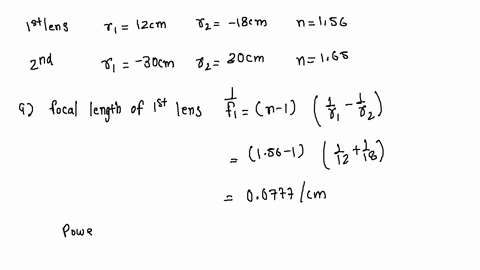 1st lens r1 = 12cm r2 = -18cm n = 1.56
2nd r1 = -30cm r2 = 30cm n = 1.65
a) focal length of 1st lens 1/f1 = (n-1) (1/r1 - 1/r2)
= (1.56-1) (1/12 + 1/18)
= 0.0777/cm
Powe